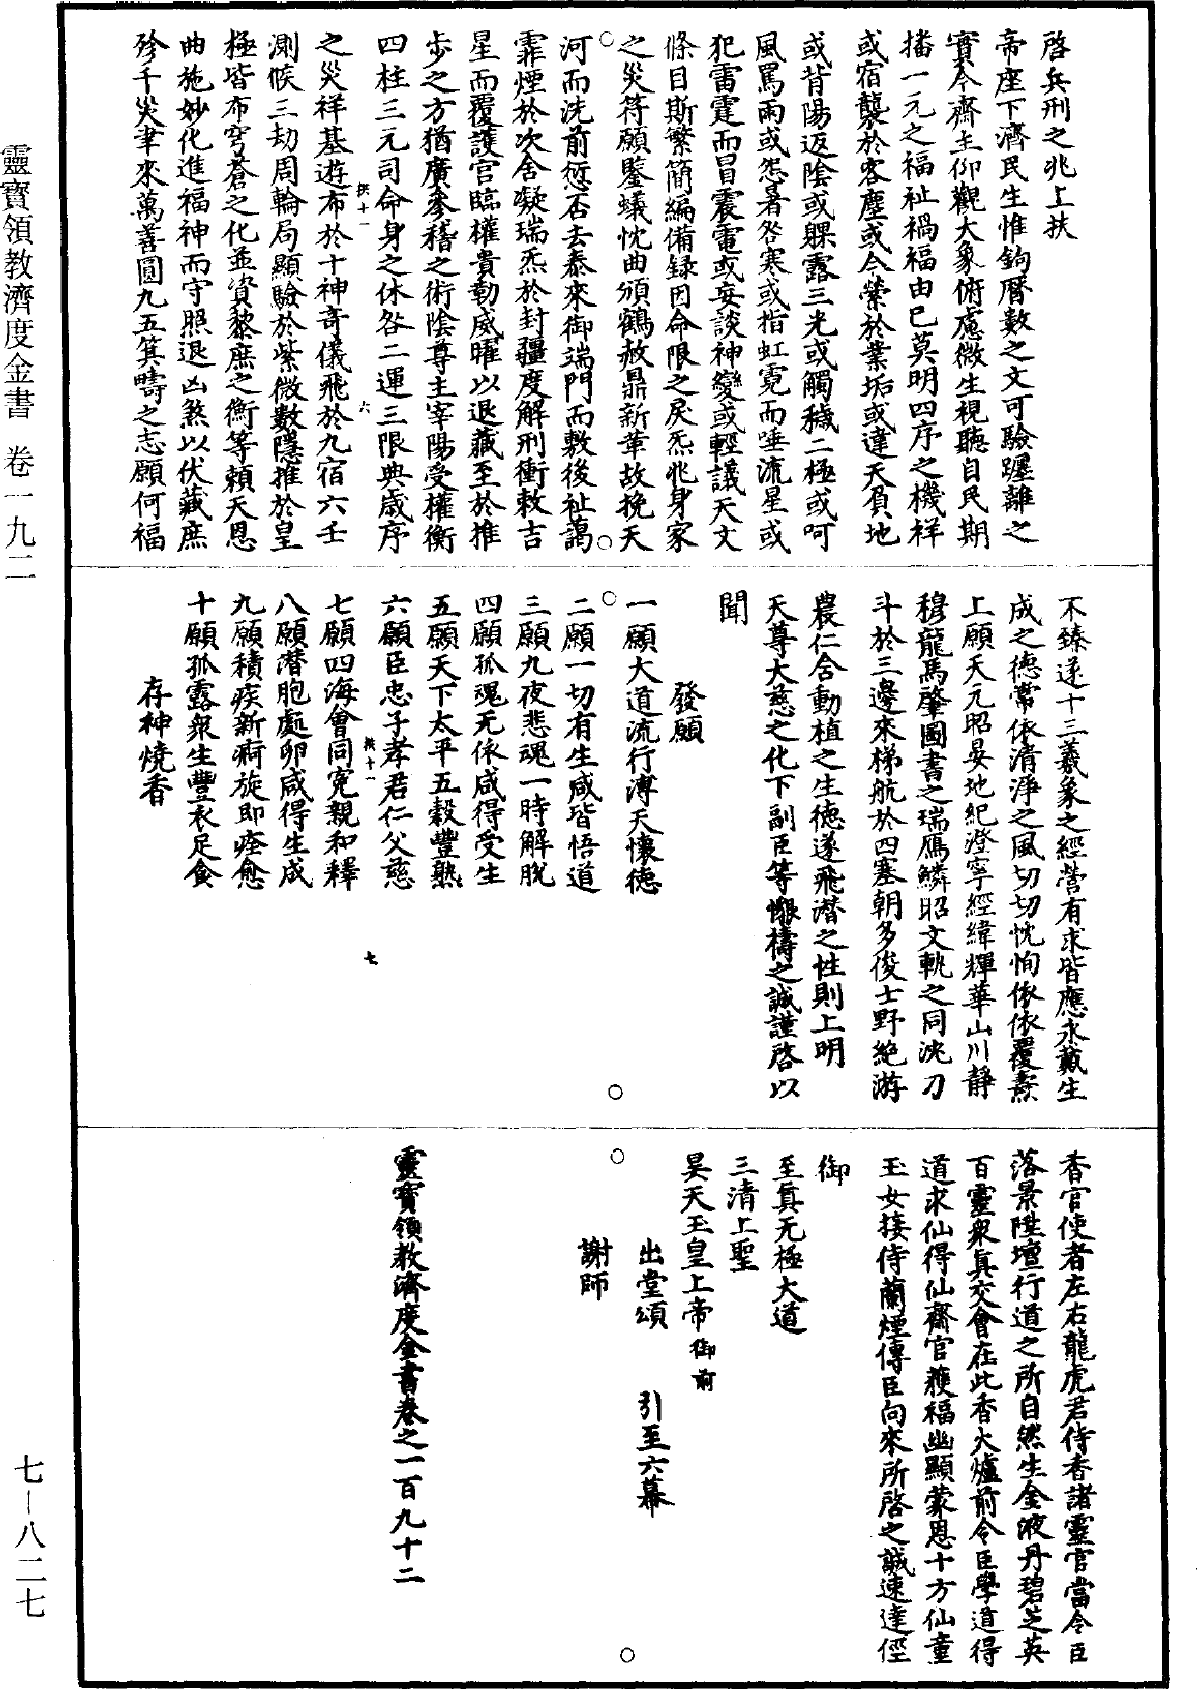 啓兵刑之兆上扶
帝座下濟民生惟鉤曆數之文可驗躔離之
實今齋主仰觀大象俯慮微生視聽自民期
播一元之福祉禍福由巳莫明四序之機祥
或宿襲於客塵或今縈於業垢或違天負地
或背陽返陰或躶露三光或觸穢二極或呵
風罵雨或怨暑咎寒或指虹霓而唾流星或
犯雷霆而冒震電或妄談神變或輕議天文
條目斯繁簡編備録因命限之戾炁兆身家
之災符願鑒蟻忱曲頒鶴赦鼎新革故挽天
河而洗前愆否去泰來御端門而敷後祉藹
霏煙於次舍凝瑞炁於封疆度解刑衝敕吉
星而覆護官臨權貴勅威曜以退藏至於推
步之方猶廣參稽之術陰尊主宰陽受權衡
四柱三元司命身之休咎二運三限典歲序
之災祥基遊布於十神奇儀飛於九宿六壬
測候三劫周輪局顯驗於紫微數隱推於皇
極皆布穹蒼之化並資黎庶之衡等頼天恩
曲施妙化進福神而守照退凶煞以伏藏庶
殄千災聿來萬善圓九五箕疇之志願何福
不臻遂十三羲象之經營有求皆應永戴生
成之德常依清淨之風切切忱恂依依覆燾
上願天元昭晏地紀澄寧經緯輝華山川靜
穆龍馬肇圖書之瑞鳳鱗昭文軌之同洗刀
斗於三邊來梯航於四塞朝多俊士野絶游
農仁含動植之生德遂飛潛之性則上明
天尊大慈之化下副臣等懇禱之誠謹啓以
聞
發願
一願大道流行溥天懷德
二願一切有生咸皆悟道
三願九夜悲魂一時解脫
四願孤魂无依咸得受生
五願天下太平五穀豐熟
六願臣忠子孝君仁父慈
七願四海會同寃親和釋
八願潛胞處卵咸得生成
九願積疾新痾旋即痊愈
十願孤露衆生豐衣足食
存神燒香
香官使者左右龍虎君侍香諸靈官當令臣
落景陞壇行道之所自然生金液丹碧芝英
百靈衆真交會在此香火爐前令臣學道得
道求仙得仙齋官獲福幽顯蒙恩十方仙童
玉女接侍蘭煙傳臣向來所啓之誠速達徑
御
至真无極大道
三清上聖
昊天玉皇上帝御前
出堂頌　引至六幕
謝師
靈寶領教濟度金書卷之一百九十二
靈寶領教濟度金書　卷一九二
七—八二七